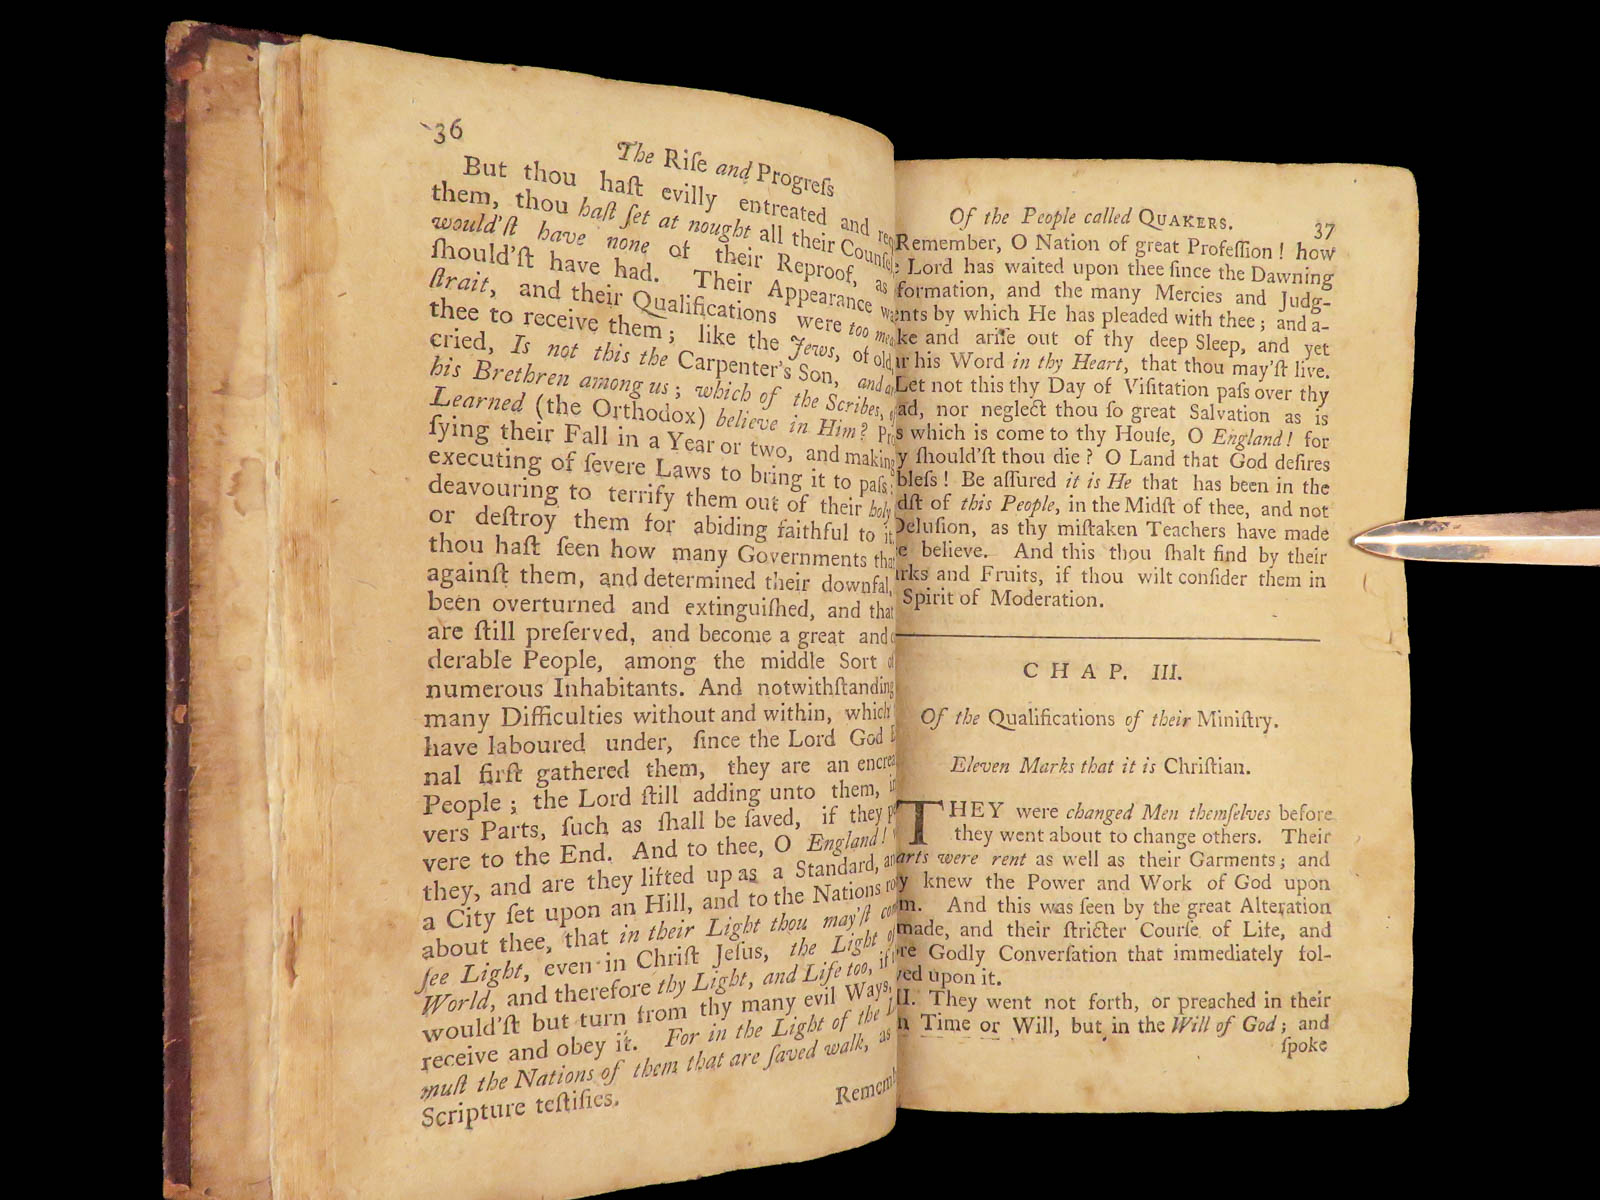 36
The Riſe and Progreſs
But thou haſt evilly entreated and
them, thou haſt ſet at nought all their
would'ſt have none of their Reproof, as
ſhould'ſt have had. Their Appearance
ſtrait, and their Qualifications were too
thee to receive them; like the Jews, of old,
cried, Is not this the Carpenter's Son, and
his Brethren among us; which of the Scribes,
Learned (the Orthodox) believe in Him?
ſying their Fall in a Year or two, and making
executing of ſevere Laws to bring it to paſs;
deavouring to terrify them out of their holy
or deſtroy them for abiding faithful to it,
thou haſt ſeen how many Governments
againſt them, and determined their downfal,
been overturned and extinguiſhed, and that
are ſtill preſerved, and become a great and
derable People, among the middle Sort
numerous Inhabitants. And notwithſtanding
many Difficulties without and within, which
have laboured under, ſince the Lord God
nal firſt gathered them, they are an
People; the Lord ſtill adding unto them,
vers Parts, ſuch as ſhall be ſaved, if they
vere to the End. And to thee, O England!
they, and are they lifted up as a Standard,
a City ſet upon an Hill, and to the Nations
about thee, that in their Light thou may'ſt
ſee Light, even in Chriſt Jeſus, the Light
World, and therefore thy Light, and Life too, if
would'ſt but turn from thy many evil Ways,
receive and obey it. For in the Light of the
muſt the Nations of them that are ſaved walk, as
Scripture teſtifies.
Of the People called QUAKERS. 37
Remember, O Nation of great Profeſſion! how
Lord has waited upon thee ſince the Dawning
formation, and the many Mercies and Judg-
ents by which He has pleaded with thee; and a-
ke and ariſe out of thy deep Sleep, and yet
his Word in thy Heart, that thou may'ſt live.
Let not this thy Day of Viſitation paſs over thy
ad, nor neglect thou ſo great Salvation as is
s which is come to thy Houſe, O England! for
y ſhould'ſt thou die? O Land that God deſires
bleſs! Be aſſured it is He that has been in the
dſt of this People, in the Midſt of thee, and not
Deluſion, as thy miſtaken Teachers have made
e believe. And this thou ſhalt find by their
rks and Fruits, if thou wilt conſider them in
Spirit of Moderation.
CHAP. III.
Of the Qualifications of their Miniſtry.
Eleven Marks that it is Chriſtian.
THEY were changed Men themſelves before
they went about to change others. Their
arts were rent as well as their Garments; and
y knew the Power and Work of God upon
m. And this was ſeen by the great Alteration
made, and their ſtricter Courſe of Life, and
re Godly Converſation that immediately fol-
ed upon it.
II. They went not forth, or preached in their
n Time or Will, but in the Will of God; and
ſpoke